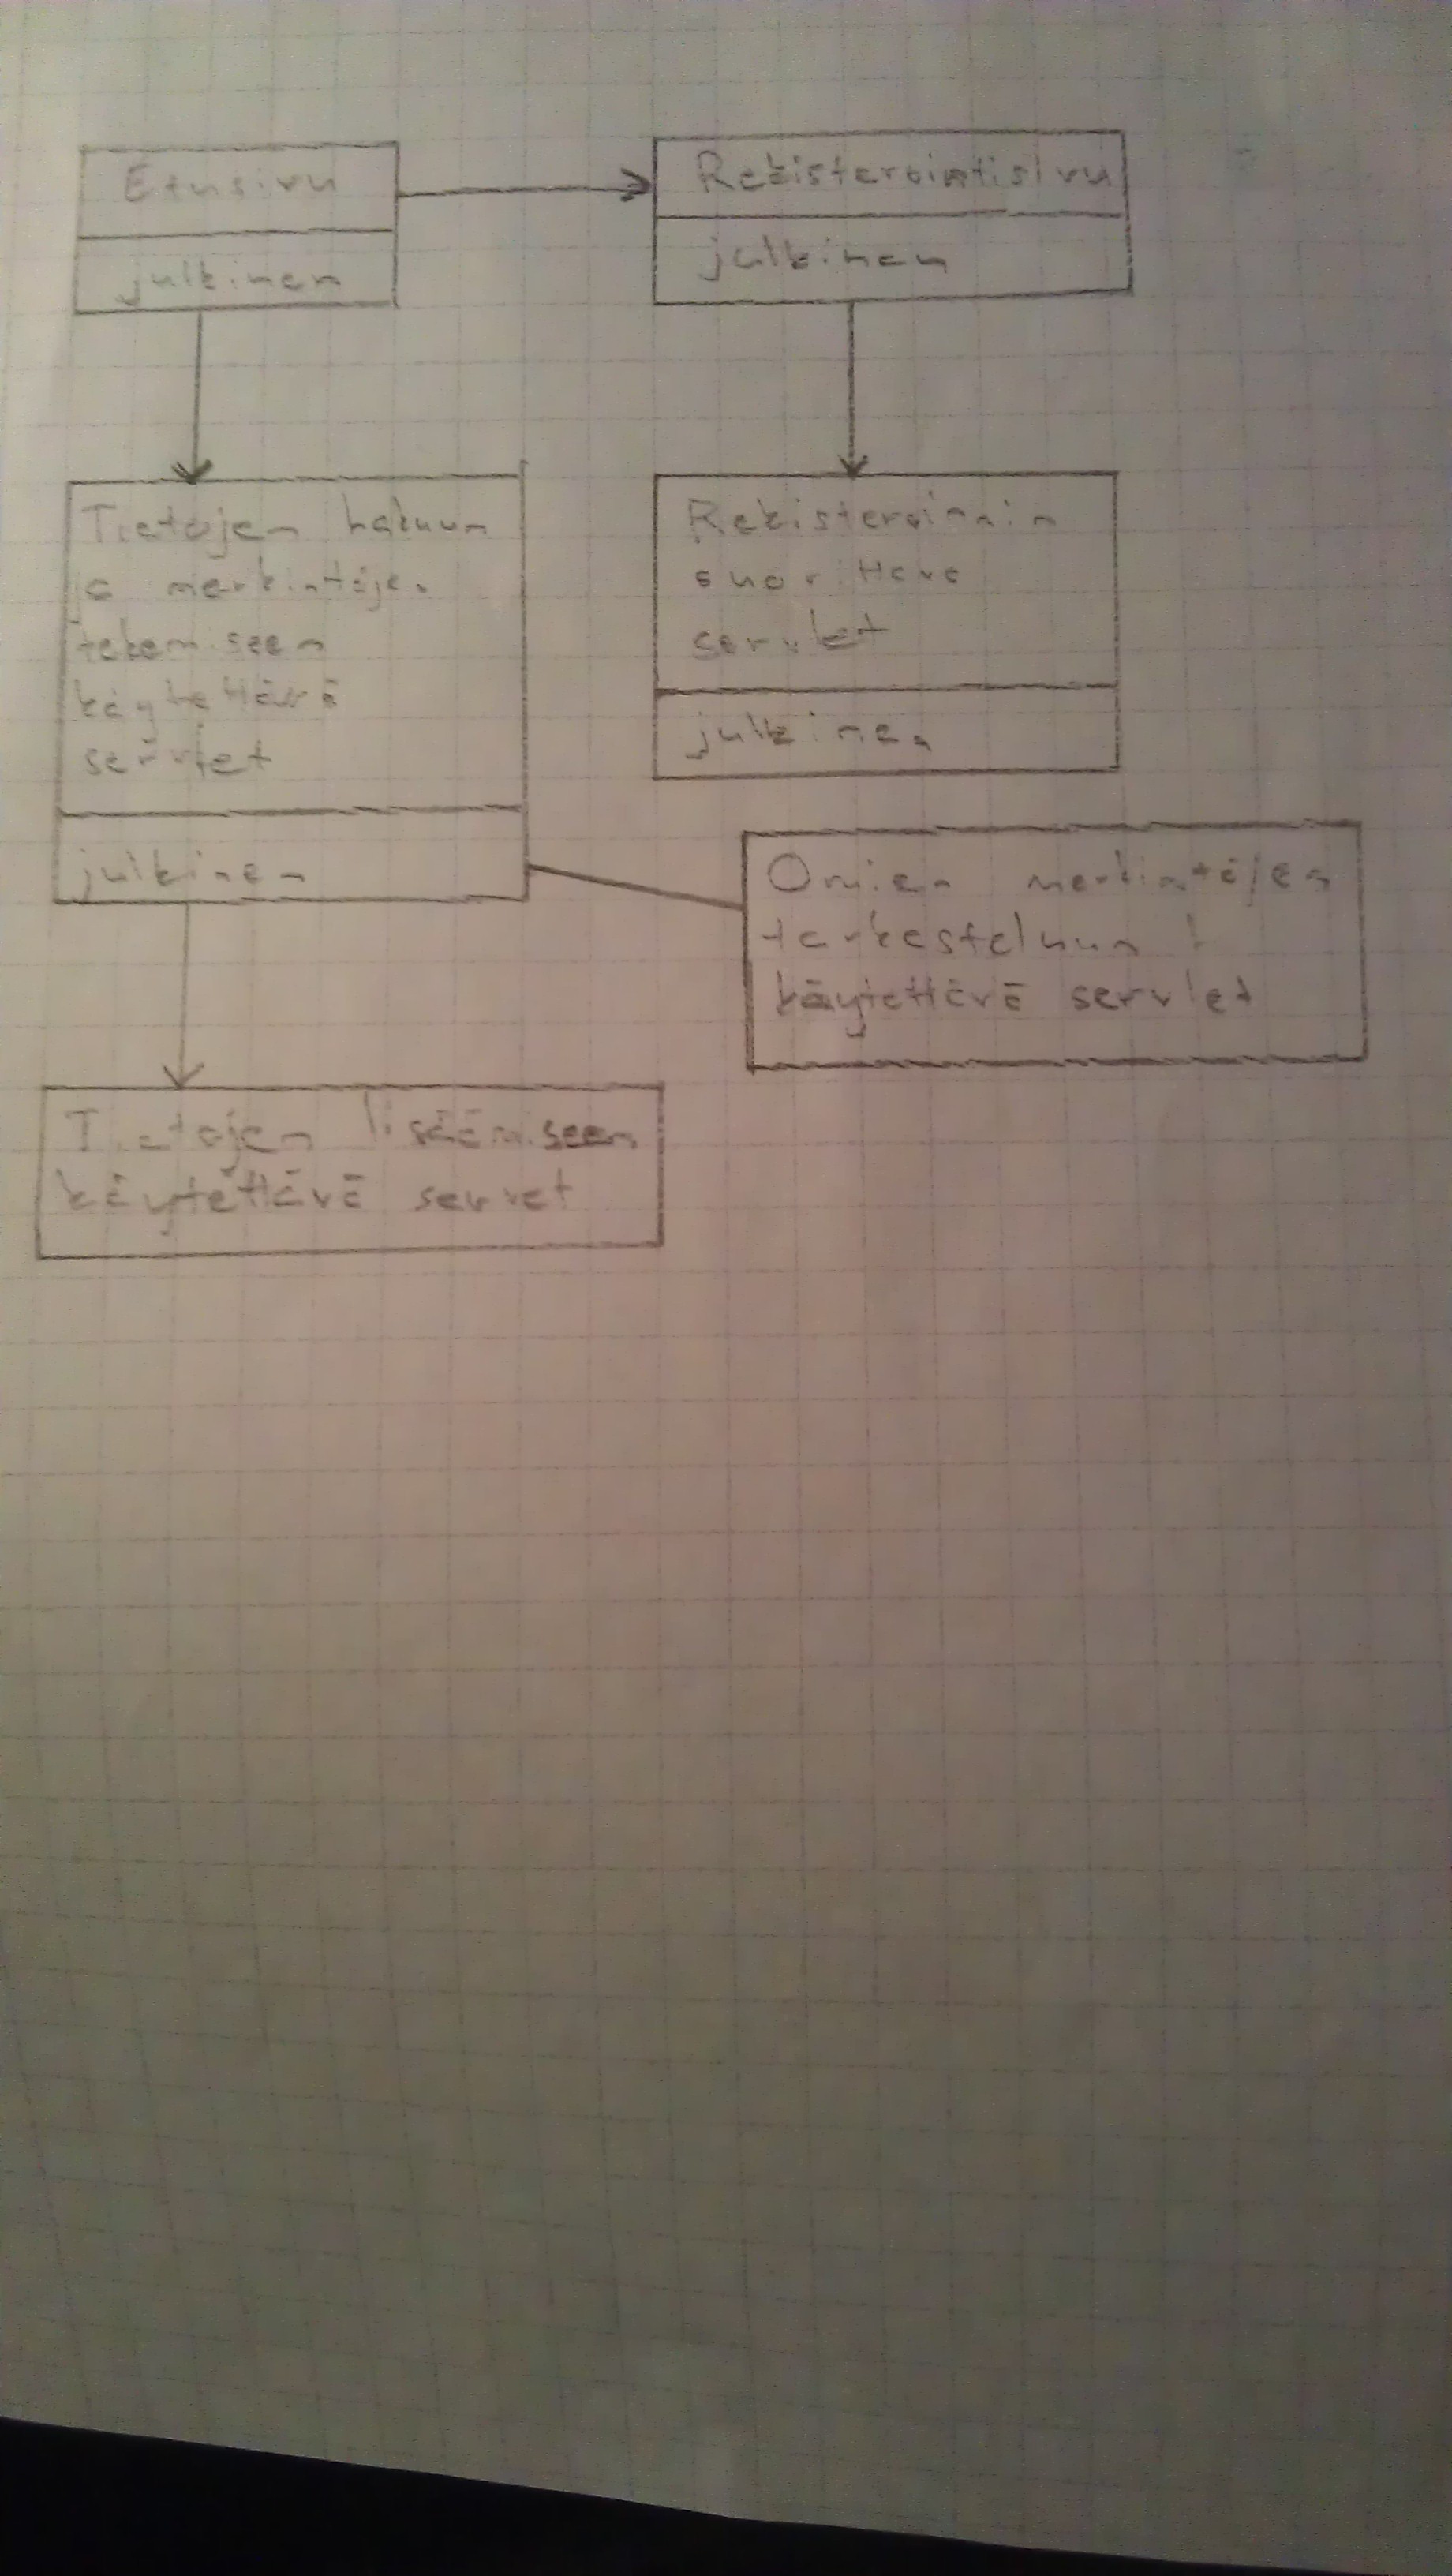 Etusivu
julkinen
Rekisterointisivu
julkinen
Tietojen hakuun
ja merkintöjen
tekemiseen
käytettävä
servlet
julkinen
Rekisteroinnin
suorittava
servlet
julkinen
Omien merkintöjen
tarkasteluun
käytettävä servlet
Tietojen lisäämiseen
käytettävä servet